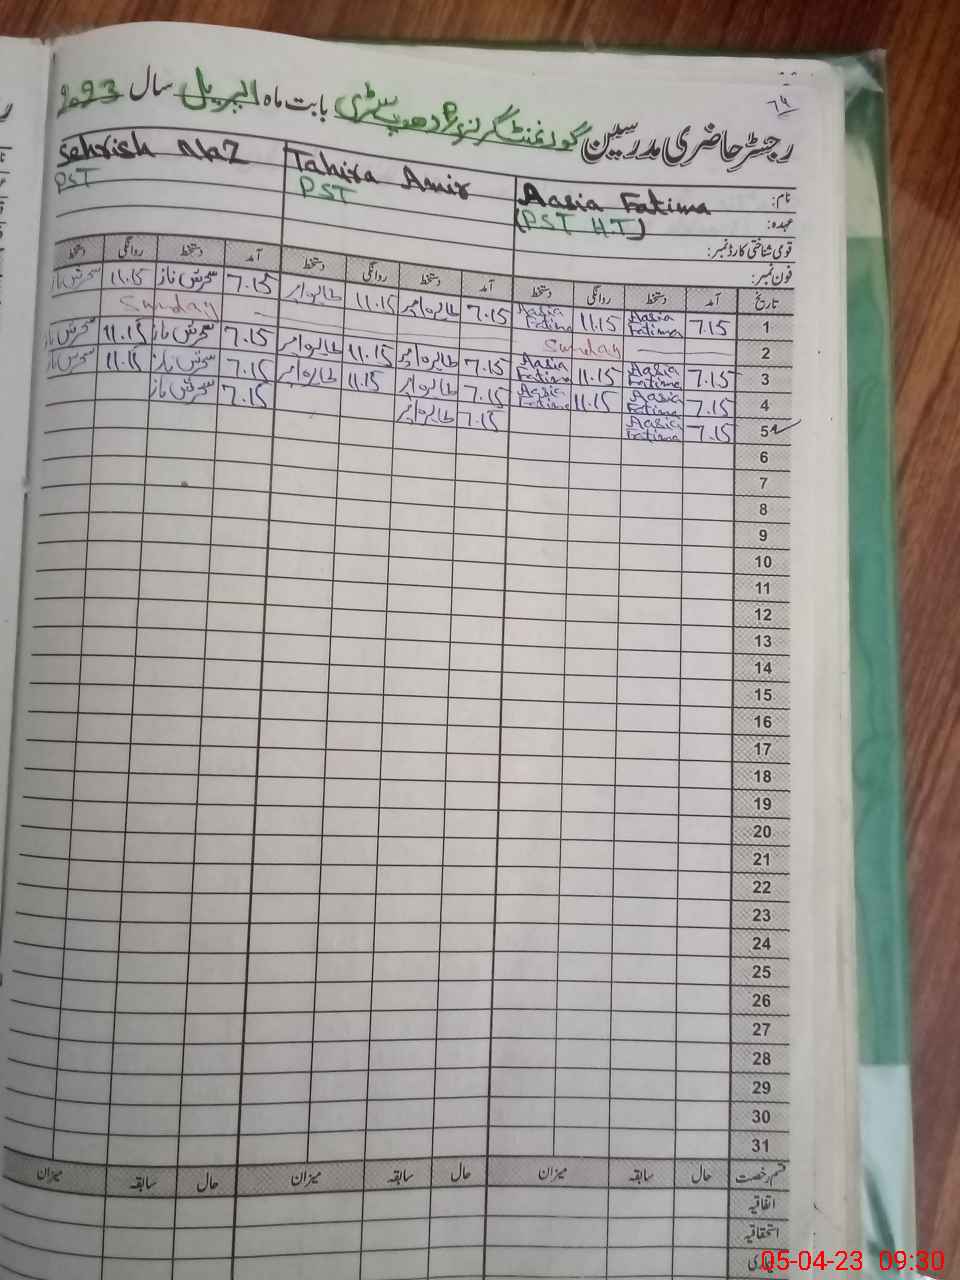 رجسٹر حاضری مدرسین گورنمنٹ گرلز بابت ماہ اپریل سال 2023
نام: Aasia Fatima Tahira Amir Sehrish Naz
عہدہ: (PST H.T) PST PST
قومی شناختی کارڈ نمبر:
فون نمبر:
تاریخ آمد دستخط روانگی دستخط آمد دستخط روانگی دستخط آمد دستخط روانگی دستخط
1 7.15 Aasia Fatima 11.15 Aasia Fatima 7.15 طاہرہ امیر 11.15 طاہرہ امیر 7.15 سحرش ناز 11.15 سحرش ناز
2 Sunday Sunday
3 7.15 Aasia Fatima 11.15 Aasia Fatima 7.15 طاہرہ امیر 11.15 طاہرہ امیر 7.15 سحرش ناز 11.15 سحرش ناز
4 7.15 Aasia Fatima 11.15 Aasia Fatima 7.15 طاہرہ امیر 11.15 طاہرہ امیر 7.15 سحرش ناز 11.15 سحرش ناز
5 7.15 Aasia Fatima 7.15 طاہرہ امیر 7.15 سحرش ناز
6
7
8
9
10
11
12
13
14
15
16
17
18
19
20
21
22
23
24
25
26
27
28
29
30
31
قسم رخصت حال سابقہ میزان حال سابقہ میزان حال سابقہ میزان
اتفاقیہ
استحقاقیہ
05-04-23 09:30